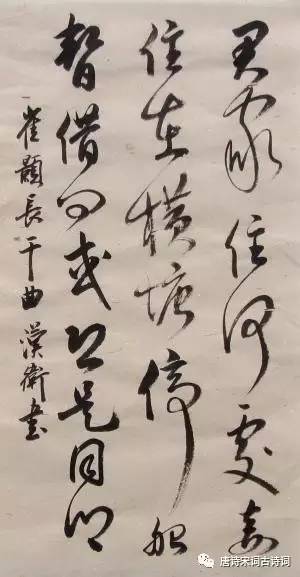 君家住何處妾
住在橫塘停船
暫借問或恐是同鄉
崔顥長干曲 漢衛書
唐诗宋词古诗词